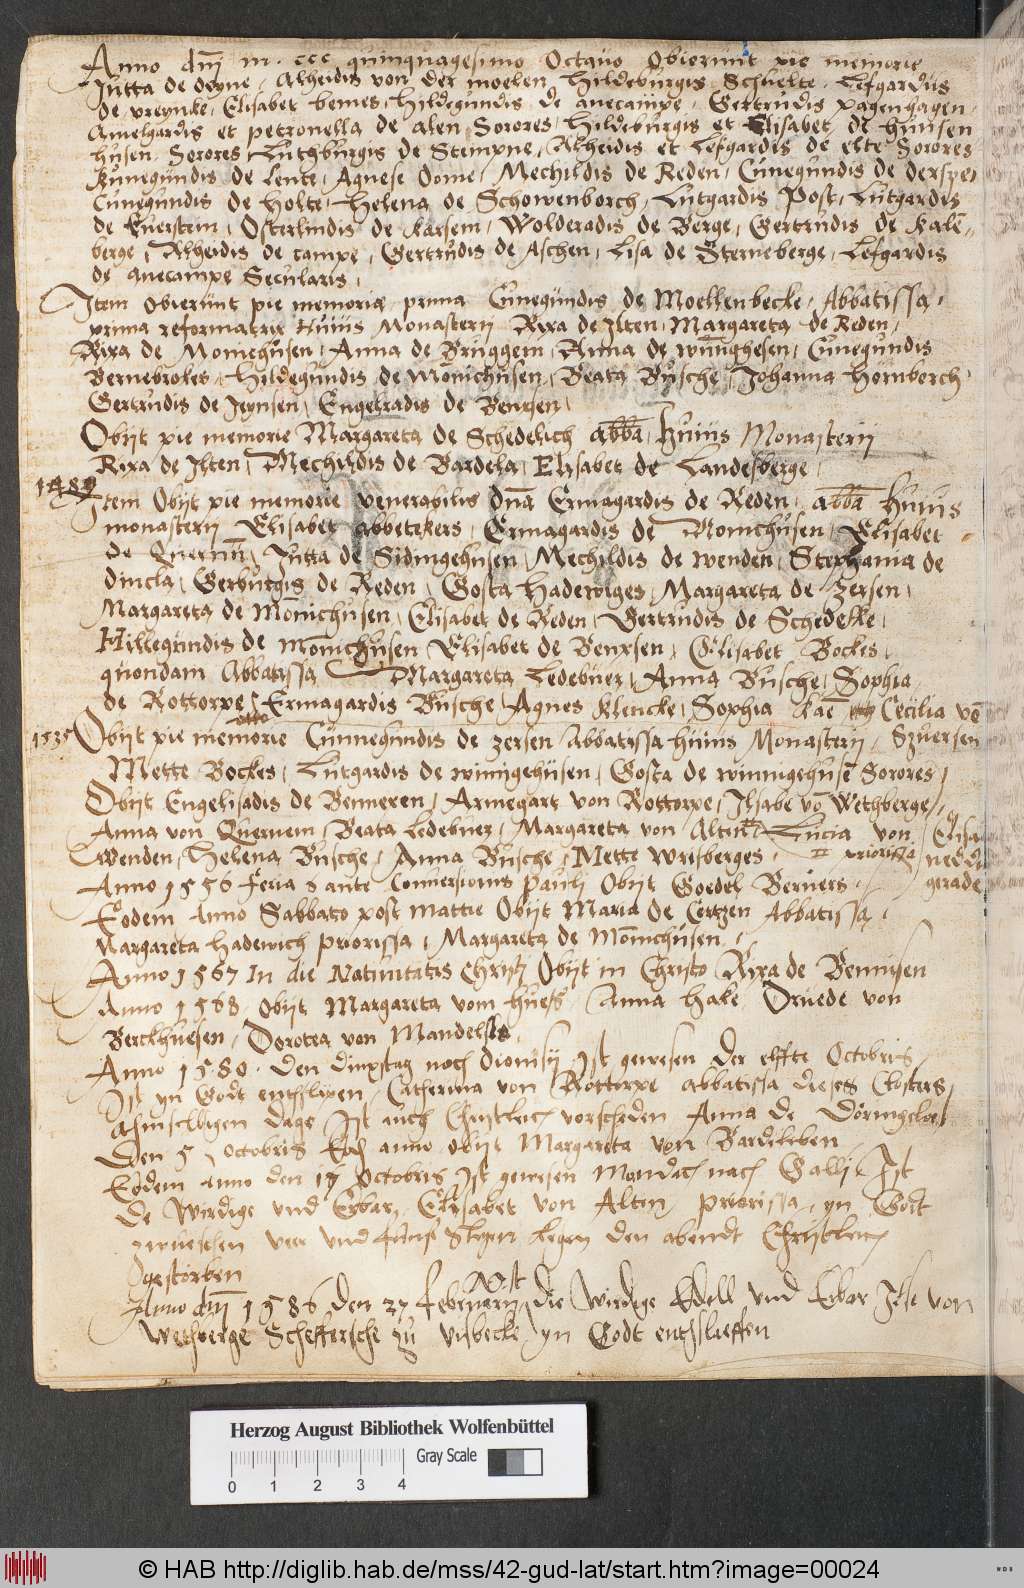 Anno dni m ccc quinquagesimo Octauo Obierunt pie memorie
Jutta de deyne, Alheidis von der moelen, Hildeburgis Schulte, Lefgardus
de vreynke, Elisabet bemes, Hildegundis de anecampe, Gertrudis pagenhagen,
Amelgardis et petronella de alen Sorores, Hildeburgis et Elisabet de hunsen
husen Sorores, Lutburgis de Stempne, Alheidis et Lefgardis de elte Sorores
Kunegundis de Lente, Agnese Dome, Mechildis de Reden, Cunegundis de derspe,
Cunegundis de Holte, Helena de Schowenborch, Lutgardis Post, Lutgardis
de Euerstein, Osterlindis de Karssem, Wolderadis de Berge, Gertrudis de Kalē
berge, Alheidis de campe, Gertrudis de Aschen, Lisa de Sterneberge, Lefgardis
de anecampe Secularis,
Item obierunt pie memoriae prima Cunegundis de Moellenbecke, Abbatissa,
prima reformatrix Huius Monasterij Rixa de Ilten, Margareta de Reden,
Rixa de Momehusen, Anna de Bruggem, Anna de wunnghesen, Cunegundis
Bernebrokes, Hildegundis de Monichusen, Beata Busche, Johanna Hornborch
Gertrudis de Jeynsen, Engelradis de Benxsen,
Obijt pie memorie Margareta de Schedelich abba, huius Monasterij
Rixa de Ilten, Mechildis de Bardela, Elisabet de Landesberge,
1489
Item Obijt pie memorie venerabilis dna Ermagardis de Reden, abba Huius
monasterij Elisabet abbetekers, Ermagardis de Monichusen, Elisabet
de Quernn, Jutta de Sidingehusen, Mechildis de wenden, Stephania de
dincla, Gerburgis de Reden, Gosta Hadewiges, Margareta de Zersen,
Margareta de Monichusen, Elisabet de Reden, Gertrudis de Schedelke,
Hillegundis de monichusen Elisabet de Benxsen, Elisabet Bockes,
quondam Abbatissa Margareta Ledebuer, Anna Busche, Sophia
de Rottorpe, Ermagardis Busche, Agnes Klencke, Sophia Cecilia vō
1535 Obijt pie memorie Cunnegundis de zersen Abbatissa huius Monasterij,
Mette Bockes, Lutgardis de winnigehusen, Gosta de winnigehusē Sorores,
Obijt Engelisadis de Bemeren, Armegart von Rottorpe, Ilsabe vō Wethberge,
Anna von Quernem, Beata Ledebuer, Margareta von Alten, Lucia von
Wenden, Helena Busche, Anna Busche, Mette Wrisberges, priorissa
Anno 1556 feria 6 ante Conuersionis Pauli Obijt Goedel Beruers,
Eodem Anno Sabbato post mattie Obijt Maria de Certzen Abbatissa,
Margareta hadewich priorissa, Margareta de Monichusen,
Anno 1567 In die Natiuitatis Christi Obijt in Christo Rixa de Bennisen
Anno 1568 obijt Margareta vom Huess Anna Hake, Druede von
Berckhuesen, Dorotea von Mandelslo,
Anno 1580 den dinxstag noch Dionisij Ist gewesen der elffte Octobris,
Ist yn Godt entslapen, Catherina von Rottorpe abbatissa dieses Closters,
Ahmselbigen dage Ist auch Christleich vorscheden Anna de Döringeloe
Den 5 octobris Eod anno obijt Margareta von Bardeleben
Eodem anno den 17 octobris Ist gewesen Mondach nach Galli, Ist
De wirdige vnd Erbar Elisabet von Alten priorissa, yn Godt
zwueschen veer vnd funff Slegen kegen den abendt Christleich
gestorben
Anno dni 1586 den 27 februarij Ist die wirdige Edell vnd Erbar Ilse von
Wethberge Scheffersche zu visbecke yn Godt entslaeffen
Herzog August Bibliothek Wolfenbüttel
Gray Scale
0 1 2 3 4
© HAB http://diglib.hab.de/mss/42-gud-lat/start.htm?image=00024